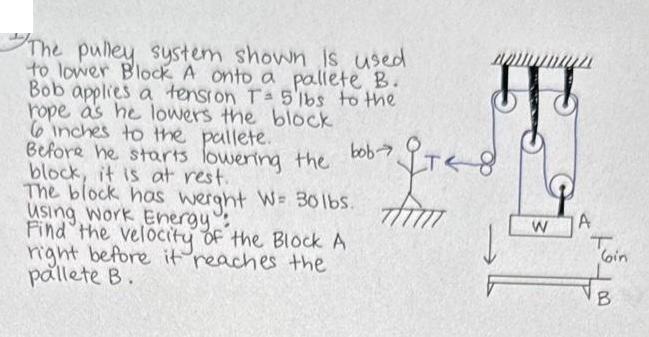 The pulley system shown is used
to lower Block A onto a pallete B.
Bob applies a tension T= 5 lbs to the
rope as he lowers the block
6 inches to the pallete.
Before he starts lowering the
block, it is at rest.
The block has weight W= 30lbs.
Using Work Energy:
Find the velocity of the Block A
right before it reaches the
pallete B.
bob→
T
W
A
6in
B